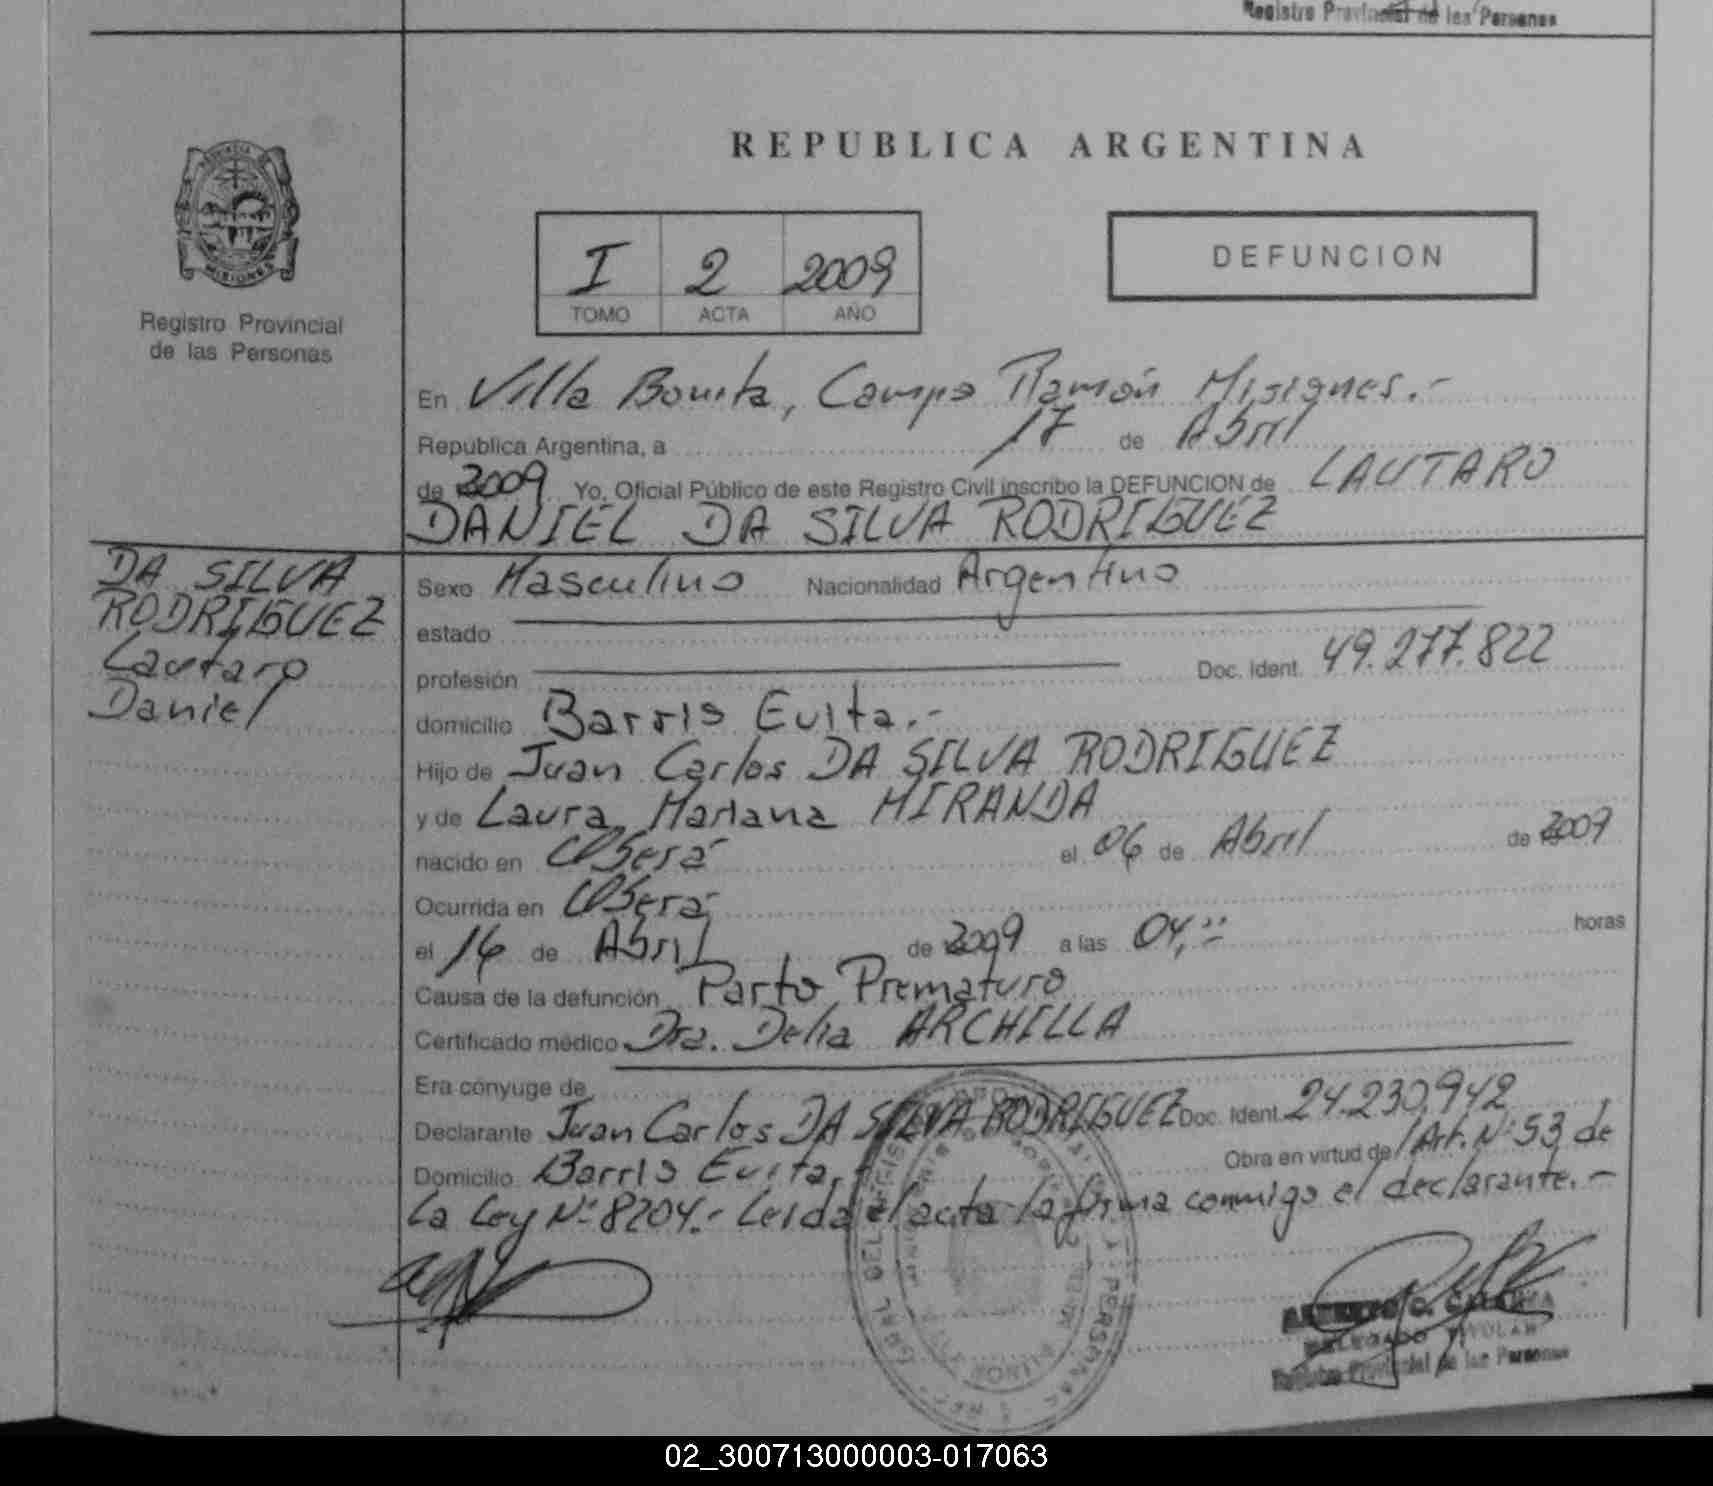 Registro Provincial de las Personas
REPUBLICA ARGENTINA
PROVINCIA DE
MISIONES
Registro Provincial
de las Personas
I 2 2009
TOMO ACTA AÑO
DEFUNCION
En Villa Bonita, Campo Ramón Misiones.-
República Argentina, a 17 de Abril
de 2009 Yo, Oficial Público de este Registro Civil inscribo la DEFUNCION de LAUTARO
DANIEL DA SILVA RODRIGUEZ
DA SILVA
RODRIGUEZ
Lautaro
Daniel
Sexo Masculino Nacionalidad Argentino
estado
profesión Doc. Ident. 49.277.822
domicilio Barrio Evita.-
Hijo de Juan Carlos DA SILVA RODRIGUEZ
y de Laura Mariana MIRANDA
nacido en Oberá el 06 de Abril de 2009
Ocurrida en Oberá
el 16 de Abril de 2009 a las 04,-- horas
Causa de la defunción Parto Prematuro
Certificado médico Dra. Delia ARCHILLA
Era cónyuge de
Declarante Juan Carlos DA SILVA RODRIGUEZ Doc. Ident. 24.230.942
Domicilio Barrio Evita.- Obra en virtud del Art. Nº 53 de
la Ley Nº 8204.- Leída el acta la firma conmigo el declarante.-
DELEGADO TITULAR
Registro Provincial de las Personas
02_300713000003-017063